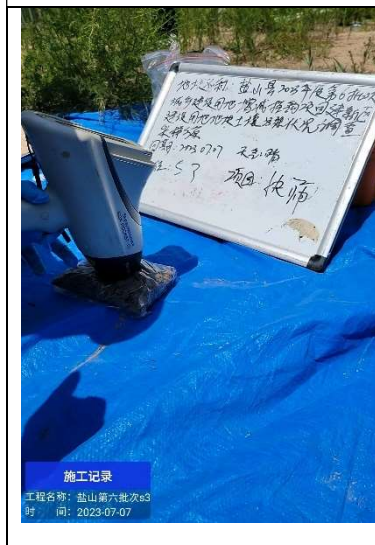 地块名称：盐山县2023年度第6批次
城乡建设用地增减挂钩项目建新区
建设用地地块土壤污染状况调查
采样方案
日期：2023.07.07 天气：晴
位：S3 项目：快筛
施工记录
工程名称：盐山第六批次s3
时 间：2023-07-07